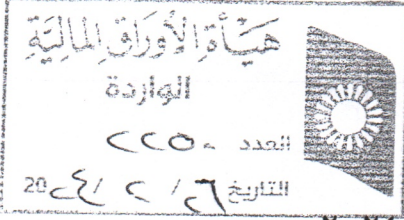 هيأة الأوراق المالية
الواردة
العدد ٢٢٥٠
التاريخ ٢٦ / ٢ / 20٢٤